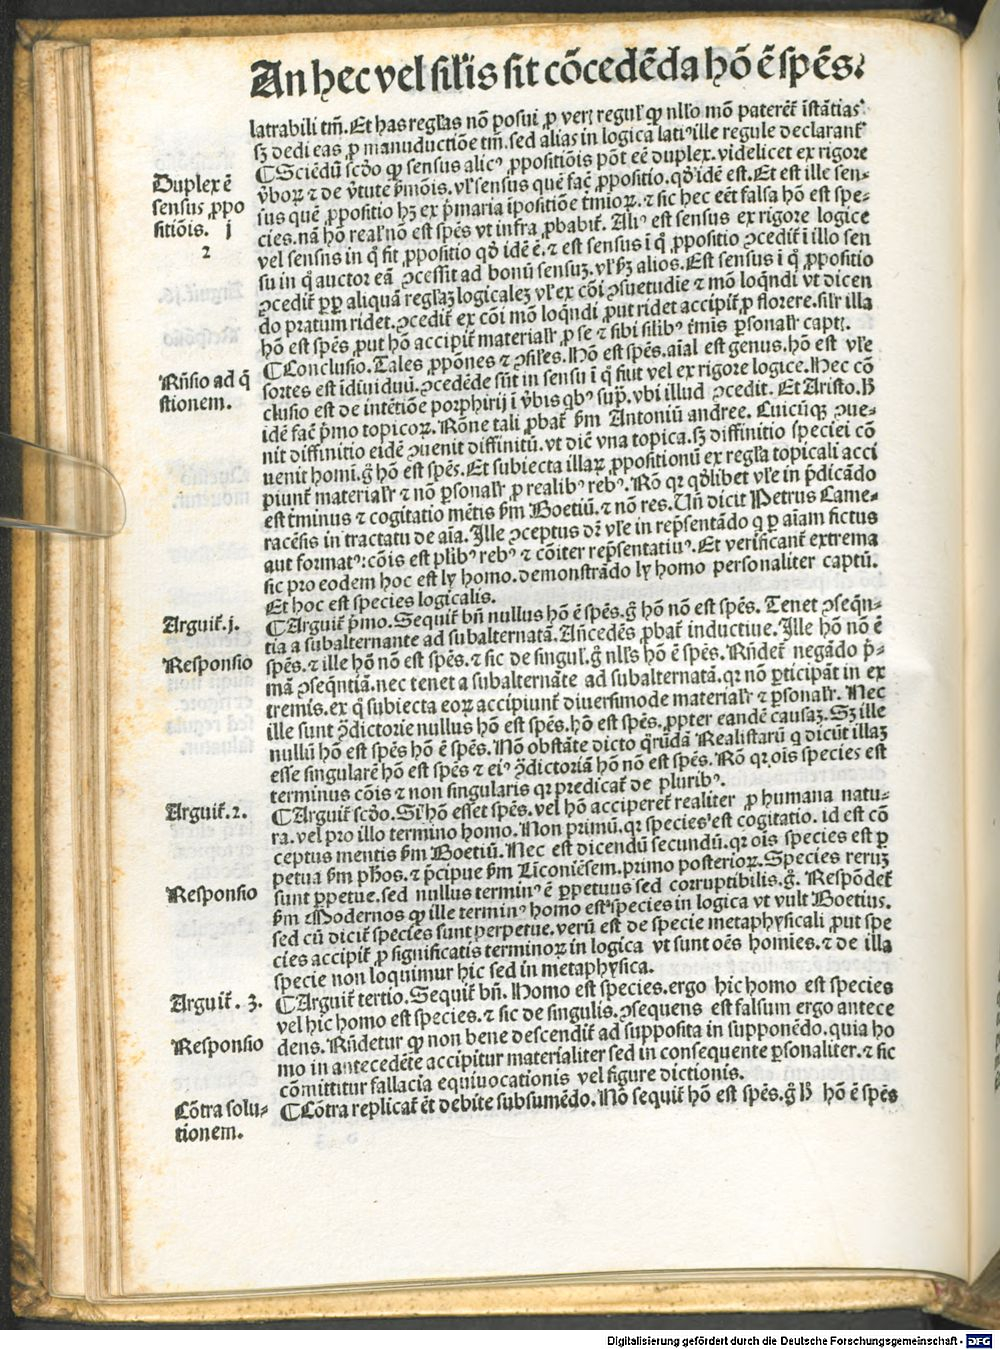 An hec vel siłis sit cōcedēda hō ē spēs.
latrabili tm̄. Et has regłas nō posui ꝓ veri reguł ꝙ nłlo mō paterēt̄ īstātias
sꝫ dedi eas ꝓ manuductiōe tm̄. sed alias in logica lati⁹ ille regule declarant̄
Duplex ē
sensus ꝓpo
sitiōis. j
2
¶ Sciēdū scd̄o ꝙ sensus alic⁹ ꝓpositiōis pōt eē duplex. videlicet ex rigore
v̄boꝝ ⁊ de v̄tute ſmōis. vł sensus quē fac̄ ꝓpositio. qd̄ idē est. Et est ille sen-
sus quē ꝓpositio hꝫ ex p̄maria īpositiōe t̄mioꝝ. ⁊ sic hec eēt falsa hō est spe-
cies. nā hō reałr nō est spēs vt infra ꝓbabit̄. Ali⁹ est sensus ex rigore logice
vel sensus in q̄ fit ꝓpositio qd̄ idē ē. ⁊ est sensus ī q̄ ꝓpositio ꝯcedit̄ ī illo sen
su in q̄ auctor eā ꝯcessit ad bonū sensuꝫ. vł ẜm alios. Est sensus ī q̄ ꝓpositio
ꝯcedit̄ ꝓpꝑ aliquā regłaꝫ logicaleꝫ vł ex cōi ꝯsuetudie ⁊ mō loq̄ndi vt dicen
do pratum ridet. ꝯcedit̄ ex cōi mō loq̄ndi ꝓut ridet accipit̄ ꝓ florere. siłr illa
hō est spēs ꝓut hō accipit̄ materiałr ꝓ se ⁊ sibi silib⁹ t̄mis ꝑsonałr capt.
Rn̄sio ad q̄
stionem.
¶ Conclusio. Tales ꝓpōnes ⁊ ꝯsiłes. Hō est spēs. aīal est genus. hō est vłe
sortes est īdiuiduū. ꝯcedēde sūt in sensu ī q̄ fiut vel ex rigore logice. Hec cō
clusio est de intētiōe porphirij ī v̄bis qb⁹ sup̄. vbi illud ꝯcedit. Et Aristo. ħ
idē fac̄ p̄mo topicoꝝ. Rōne tali ꝓbat̄ ẜm Antoniū andree. Cuicūqꝫ ꝯue-
nit diffinitio eidē ꝯuenit diffinitū. vt diē vna topica. sꝫ diffinitio speciei cō
uenit homi. g̊ hō est spēs. Et subiecta illaꝝ ꝓpositionū ex regła topicali acci
piunt̄ materiałr ⁊ nō ꝑsonałr ꝓ realib⁹ reb⁹. Rō qꝛ qd̄libet vłe in p̄dicādo
est t̄minus ⁊ cogitatio mētis ẜm Boetiū. ⁊ nō res. Un̄ dicit Petrus Came-
racēsis in tractatu de aīa. Ille ꝯceptus dr̄ vłe in rep̄sentādo q ꝑ aīam fictus
aut format⁹: cōis est plib⁹ reb⁹ ⁊ cōiter rep̄sentatiu⁹. Et verificant̄ extrema
sic pro eodem hoc est ly homo. demonstrādo ly homo personaliter captū.
Et hoc est species logicalis.
Arguit̄. j.
¶ Arguit̄ p̄mo. Sequit̄ bn̄ nullus hō ē spēs. g̊ hō nō est spēs. Tenet ꝯseq̄n-
tia a subalternante ad subalternatā. Añcedēs ꝓbat̄ inductiue. Ille hō nō ē
Responsio
spēs. ⁊ ille hō nō est spēs. ⁊ sic de singuł. g̊ nłls hō ē spēs. Rn̄det̄ negādo p̄-
mā ꝯseq̄ntiā. nec tenet a subalternāte ad subalternatā. qꝛ nō ꝑticipāt in ex
tremis. ex q̄ subiecta eoꝝ accipiunt̄ diuersimode materiałr ⁊ ꝑsonałr. Nec
ille sunt ꝯ̄dictorie nullus hō est spēs. hō est spēs. ꝓpter eandē causaꝫ. Sꝫ ille
nullū hō est spēs hō ē spēs. Nō obstāte dicto q̄rūdā Realistarū q dicūt illaꝫ
esse singularē hō est spēs ⁊ ei⁹ ꝯ̄dictoriā hō nō est spēs. Rō qꝛ oīs species est
terminus cōis ⁊ non singularis qꝛ predicat̄ de plurib⁹.
Arguit̄. 2.
¶ Arguit̄ scd̄o. Si hō esset spēs. vel hō acciperet̄ realiter ꝓ humana natu-
ra. vel pro illo termino homo. Non primū. qꝛ species est cogitatio. id est cō
ceptus mentis ẜm Boetiū. Nec est dicendū secundū. qꝛ oīs species est ꝑ
petua ẜm pħos. ⁊ p̄cipue ẜm Liconiēsem. primo posterioꝝ. Species reruꝫ
Responsio
sunt ꝑpetue. sed nullus termin⁹ ē ꝑpetuus sed corruptibilis. g̊. Respōdet̄
ẜm Modernos ꝙ ille termin⁹ homo est species in logica vt vult Boetius.
sed cū dicit̄ species sunt perpetue. verū est de specie metaphysicali ꝓut spe
cies accipit̄ ꝓ significatis terminoꝝ in logica vt sunt oēs homīes. ⁊ de illa
specie non loquimur hic sed in metaphysica.
Arguit̄. 3.
¶ Arguit̄ tertio. Sequit̄ bn̄. Homo est species. ergo hic homo est species
vel hic homo est species. ⁊ sic de singulis. ꝯsequens est falsum ergo antece
Responsio
dens. Rn̄detur ꝙ non bene descendit̄ ad supposita in supponēdo. quia ho
mo in antecedēte accipitur materialiter sed in consequente ꝑsonaliter. ⁊ sic
cōmittitur fallacia equiuocationis vel figure dictionis.
Cōtra solu-
tionem.
¶ Cōtra replicat̄ ēt debite subsumēdo. Nō sequit̄ hō est spēs. g̊ ħ hō ē spēs
Digitalisierung gefördert durch die Deutsche Forschungsgemeinschaft - DFG